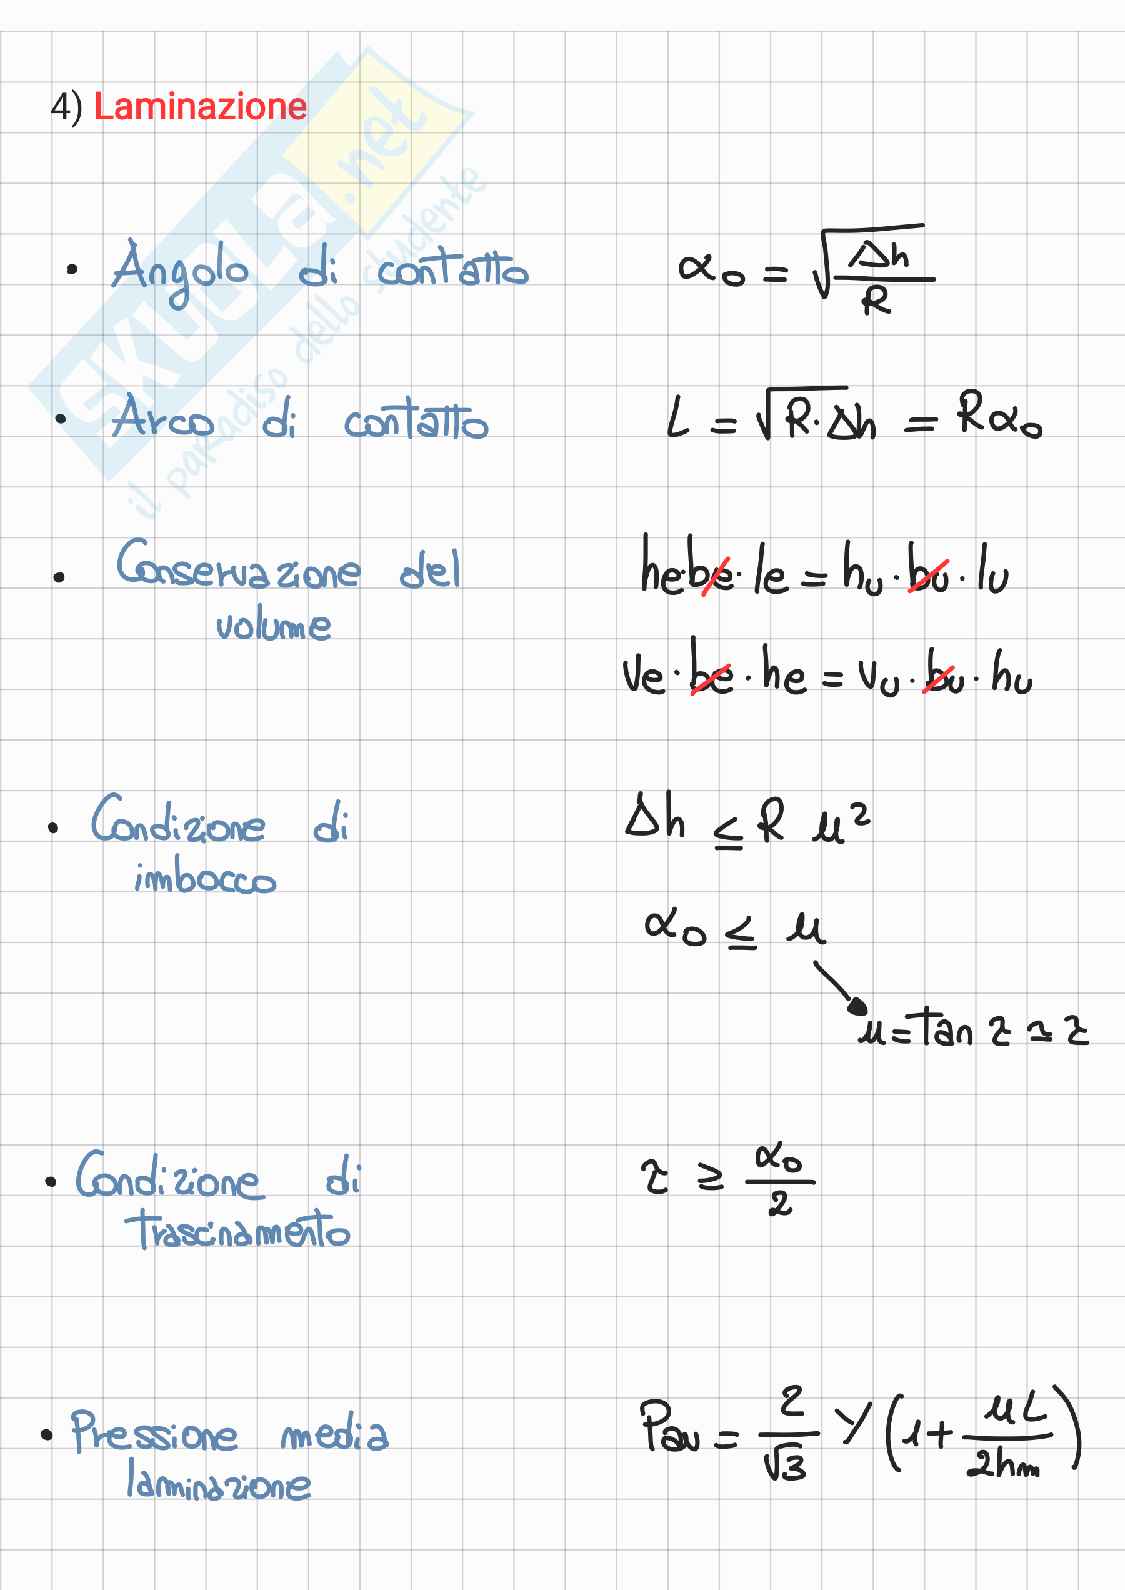 4) Laminazione
SKUOLA.net
il paradiso dello studente
• Angolo di contatto α₀ = √(Δh/R)
• Arco di contatto L = √(R·Δh) = Rα₀
• Conservazione del volume
he·be·le = hu·bu·lu
ve·be·he = vu·bu·hu
• Condizione di imbocco
Δh ≤ R μ²
α₀ ≤ μ
μ = tan τ ≃ τ
• Condizione di trascinamento
τ ≥ α₀/2
• Pressione media laminazione
Pav = 2/√3 Y (1 + μL/2hm)